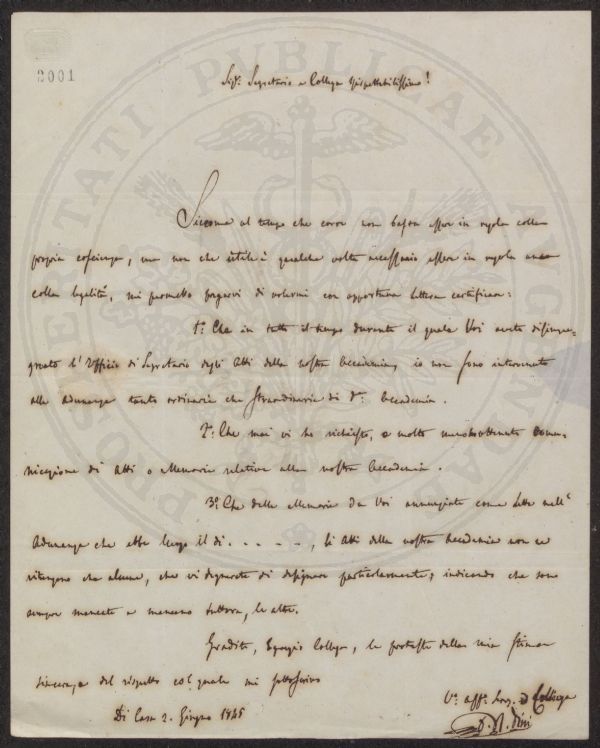 2001
Sigr. Segretario e Collega rispettabilissimo!
Siccome al tempo che corre non basta esser in regola colla
propria coscienza, ma non che utile è qualche volta necessario essere in regola anco
colla legalità, mi permetto pregarvi di volermi con opportuna lettera certificare:
1°. Che in tutto il tempo durante il quale Voi avete disimpe-
gnato l'Uffizio di Segretario degli Atti della nostra Accademia, io non sono intervenuto
alle adunanze tanto ordinarie che straordinarie di da. Accademia.
2°. Che mai vi ho richiesto, e molto meno ottenuto comu-
nicazione di Atti o Memorie relative alla nostra Accademia.
3°. Che delle Memorie da Voi annunziate come lette nell'
Adunanza che ebbe luogo il dì. . . . . , li Atti della nostra Accademia non ne
ritengono che alcune, che vi degnerete di designare particolarmente, indicando che sono
sempre mancate e mancano tuttora, le altre.
Gradite, Egregio Collega, le proteste della mia stima
sincera, e del rispetto col quale mi sottoscrivo
Di Casa 2. Giugno 1848
Vo. affo. Collega
PROSPERITATI PUBLICAE AUGENDAE